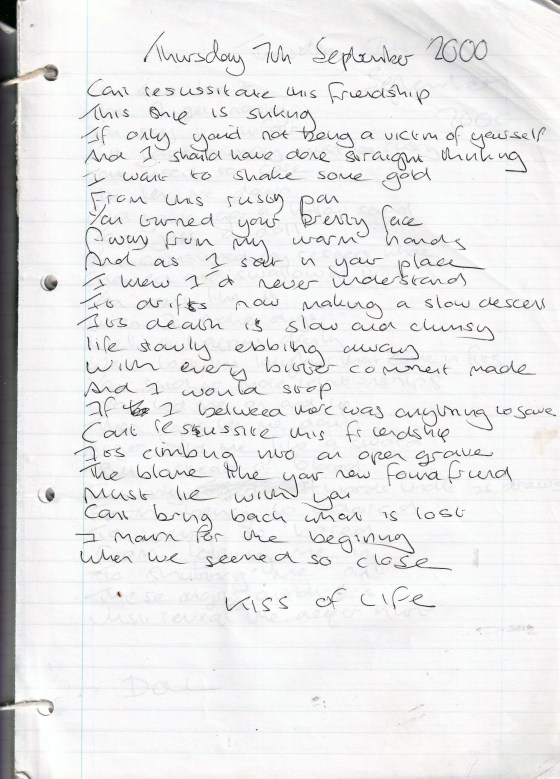 Thursday 7th September 2000
Cant resussitate this friendship
This one is sinking
If only you'd not being a victim of yourself
And I should have done straight thinking
I want to shake some gold
From this rusty pan
You turned your pretty face
Away from my warm hands
And as I sat in your place
I knew I'd never understand
Its drifts now making a slow descent
Its death is slow and clumsy
life slowly ebbing away
With every bitter comment made
And I would stop
If I believed there was anything to save
Cant resussite this friendship
Its climbing into an open grave
The blame like your new found friend
Must lie with you
Cant bring back what is lost
I mourn for the beginning
When we seemed so close
Kiss of Life